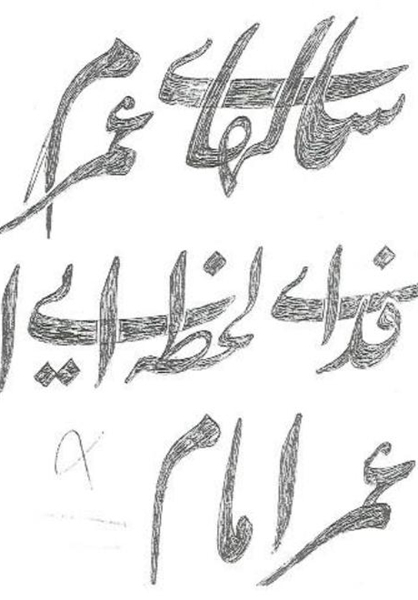 سالهای عمرم
فدای لحظه ای ا
عمر امام